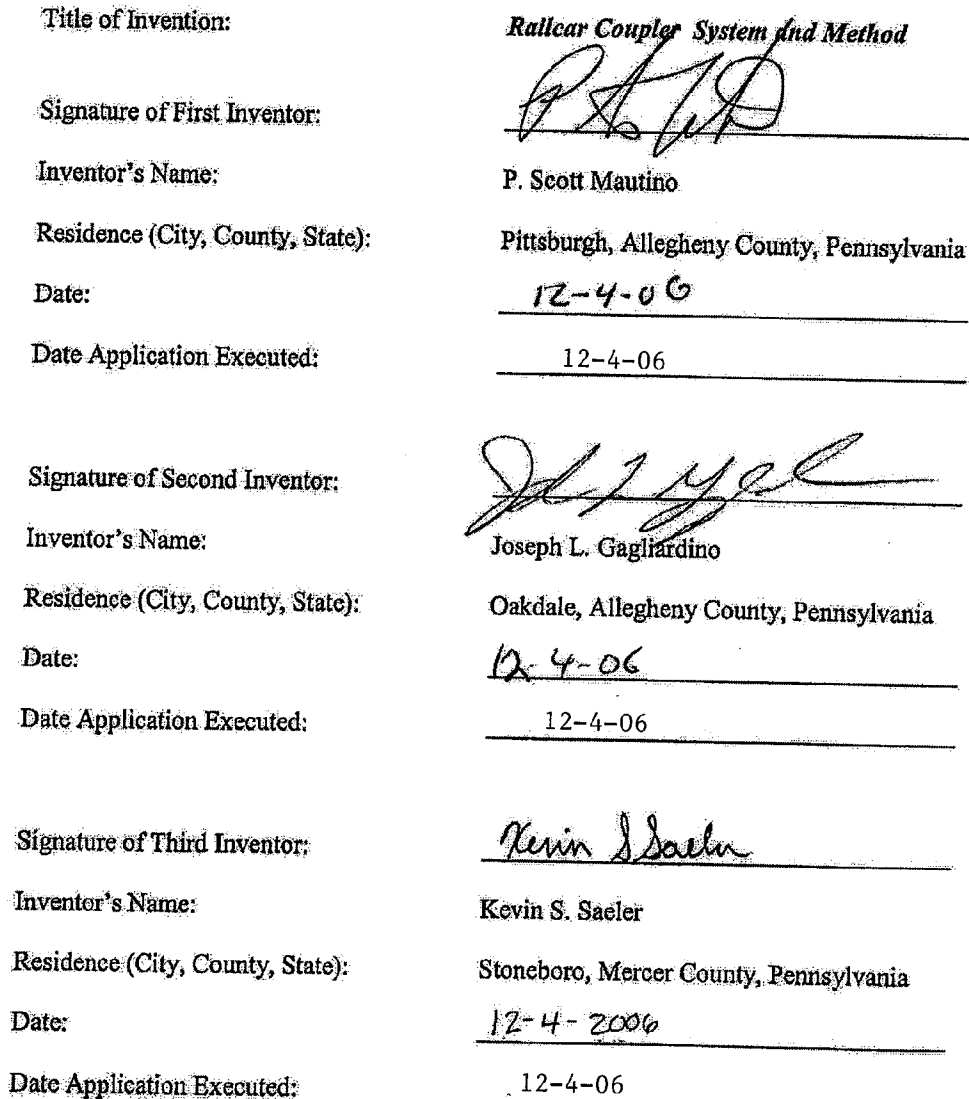 Title of Invention: Railcar Coupler System and Method
Signature of First Inventor:
Inventor's Name: P. Scott Mautino
Residence (City, County, State): Pittsburgh, Allegheny County, Pennsylvania
Date: 12-4-06
Date Application Executed: 12-4-06
Signature of Second Inventor:
Inventor's Name: Joseph L. Gagliardino
Residence (City, County, State): Oakdale, Allegheny County, Pennsylvania
Date: 12-4-06
Date Application Executed: 12-4-06
Signature of Third Inventor: Kevin S Saeler
Inventor's Name: Kevin S. Saeler
Residence (City, County, State): Stoneboro, Mercer County, Pennsylvania
Date: 12-4-2006
Date Application Executed: 12-4-06